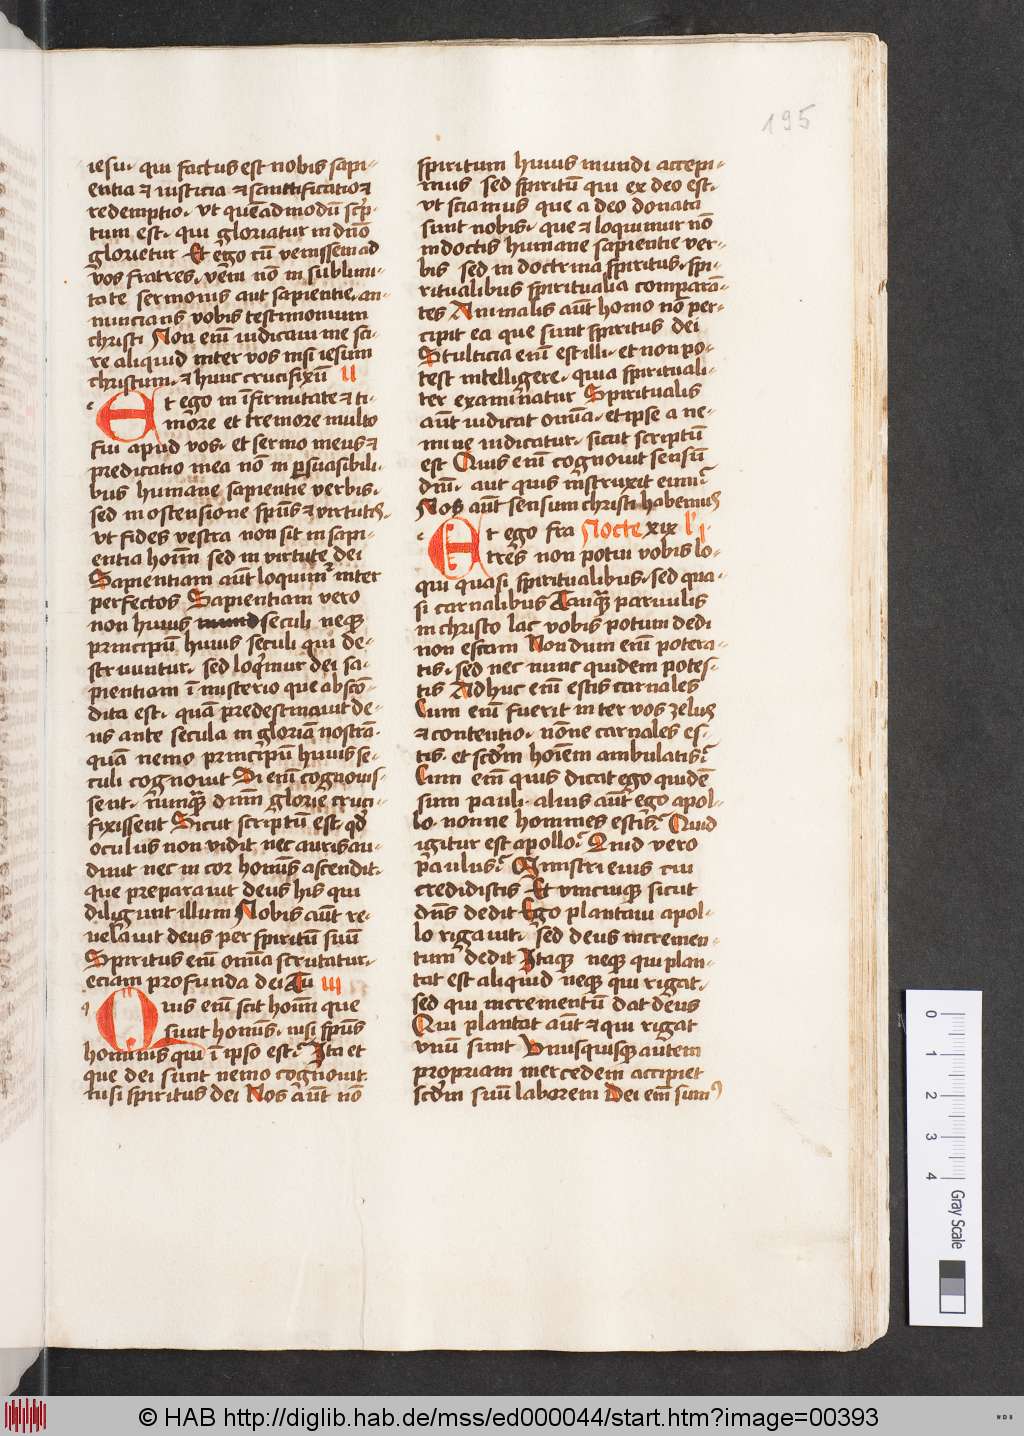 195
iesu· qui factus est nobis sapi-
entia ⁊ iusticia ⁊ sanctificatio ⁊
redemptio· vt quēadmodū scⁱp-
tum est· qui gloriatur in dn̄o
glorietur Et ego cū venissem ad
vos fratres· vēni nō in sublimi-
tate sermonis aut sapientie· an-
nuncians vobis testimonium
christi Non em̄ iudicaui me sci-
re aliquid inter vos nisi iesum
christum· ⁊ hunc crucifixū II
Et ego in īfirmitate ⁊ ti-
more et tremore multo
fui apud vos· et sermo meus ⁊
predicatio mea nō in ꝑsuasibili-
bus humane sapientie verbis·
sed in ostensione sp̄us ⁊ virtutis·
vt fides vestra non sit in sapi-
entia hoīm sed in virtute dei
Sapientiam aūt loquimʳ inter
perfectos Sapientiam vero
non huius seculi neqꝫ
principū huius seculi qui de-
struuntur· sed loqⁱmur dei sa-
pientiam ī misterio que abscō-
dita est· quā predestinauit de-
us ante secula in gloriam nostrā·
quā nemo principū huius se-
culi cognouit Si em̄ cognouis-
sent· nunqꝫ̄ dn̄m glorie cruci-
fixissent Sicut scriptū est· qd̓
oculus non vidit nec auris au-
diuit nec in cor homīs ascendit·
que preparauit deus his qui
diligunt illum Nobis aūt re-
uelauit deus per spiritū suū
Spiritus em̄ omīa scrutatur·
eciam profunda dei Tu III
Quis em̄ scit hoīm que
sunt homīs· nisi sp̄us
hominis qui ī ipso est? Ita et
que dei sunt nemo cognouit
nisi spiritus dei Nos aūt nō
spiritum huius mundi accepi-
mus sed spiritū qui ex deo est·
vt sciamus que a deo donata
sunt nobis· que ⁊ loquimur nō
in doctis humane sapientie ver-
bis sed in doctrina spiritus· spi-
ritualibus spiritualia comparā-
tes Animalis aūt homo nō per-
cipit ea que sunt spiritus dei
Stulticia em̄ est illi· et non po-
test intelligere· quia spirituali-
ter examinatur Spiritualis
aūt iudicat omīa· et ipse a ne-
mine iudicatur· sicut scriptū
est Quis em̄ cognouit sensū
dn̄i· aut quis īnstruxit eum?
Nos aūt sensum christi habemus
Et ego fra Nocte xix l' I·
tres non potui vobis lo-
qui quasi spiritualibus· sed qua-
si carnalibus Tanqꝫ̄ paruulis
in christo lac vobis potum dedi
non escam Nondum em̄ potera-
tis· sed nec nunc quidem potes-
tis Adhuc em̄ estis carnales
Cum em̄ fuerit inter vos zelus
⁊ contentio· nōne carnales es-
tis· et scd̓m hoīem ambulatis?
Cum em̄ quis dicat ego quidē
sum pauli· alius aūt ego apol-
lo· nonne homines estis? Quid
igitur est apollo? Quid vero
paulus? Ministri eius cui
credidistis Et vnicuiqꝫ sicut
dn̄s dedit Ego plantaui apol-
lo rigauit· sed deus incremen-
tum dedit Itaqꝫ neqꝫ qui plan-
tat est aliquid neqꝫ qui rigat·
sed qui incrementū dat deus
Qui plantat aūt ⁊ qui rigat
vnū sunt Vnusquisqꝫ autem
propriam mercedem accipiet
scd̓m suū laborem Dei em̄ sumꝰ
0 1 2 3 4
Gray Scale
© HAB http://diglib.hab.de/mss/ed000044/start.htm?image=00393